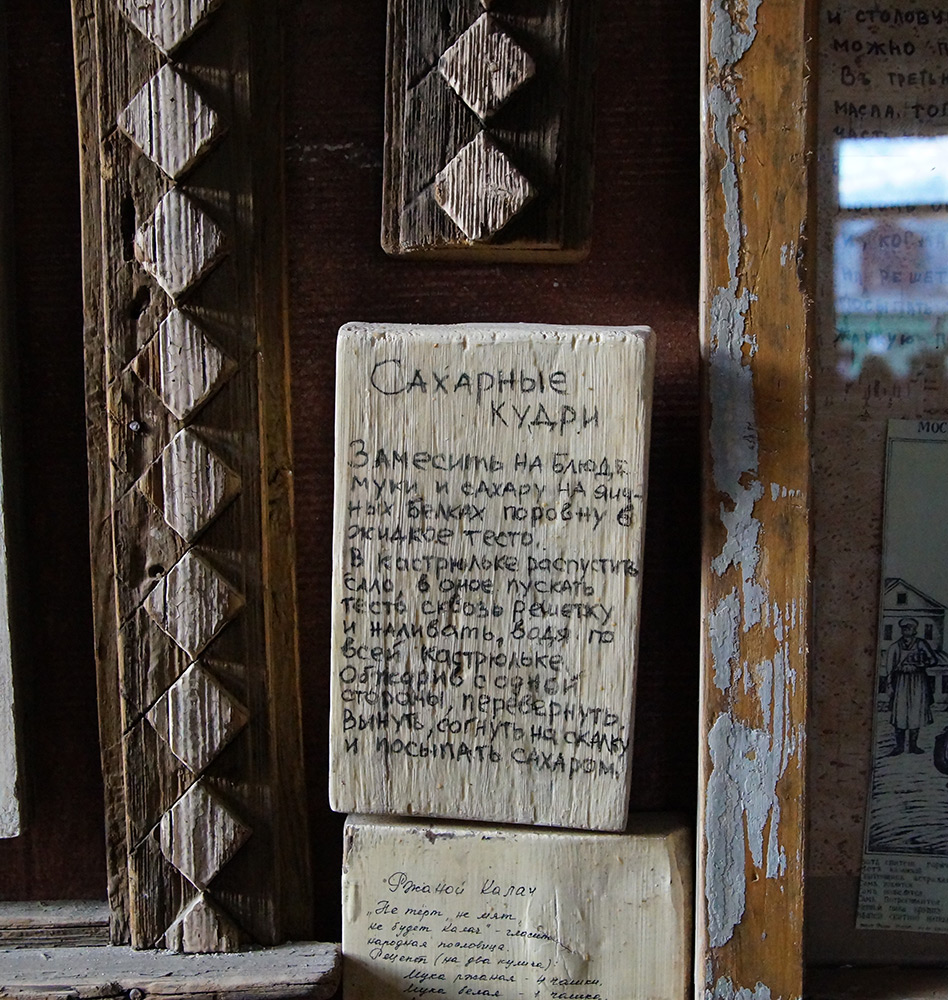 Сахарные
кудри
Замесить на блюде
муки и сахару на яич-
ных белках поровну в
жидкое тесто.
В кастрюльке распустить
сало, в оное пускать
тесто сквозь решетку
и наливать, водя по
всей кастрюльке.
Обжарив с одной
стороны, перевернуть.
Вынуть, согнуть на скалку
и посыпать сахаром.
Ржаной Калач
„Не тёрт, не мят,
не будет калач" - гласит
народная пословица.
Рецепт (на два кулича):
Мука ржаная - 4 чашки.
Мука белая - 1 чашка.
и столову
можно п
Въ треть
масла, то
из решет
МОС